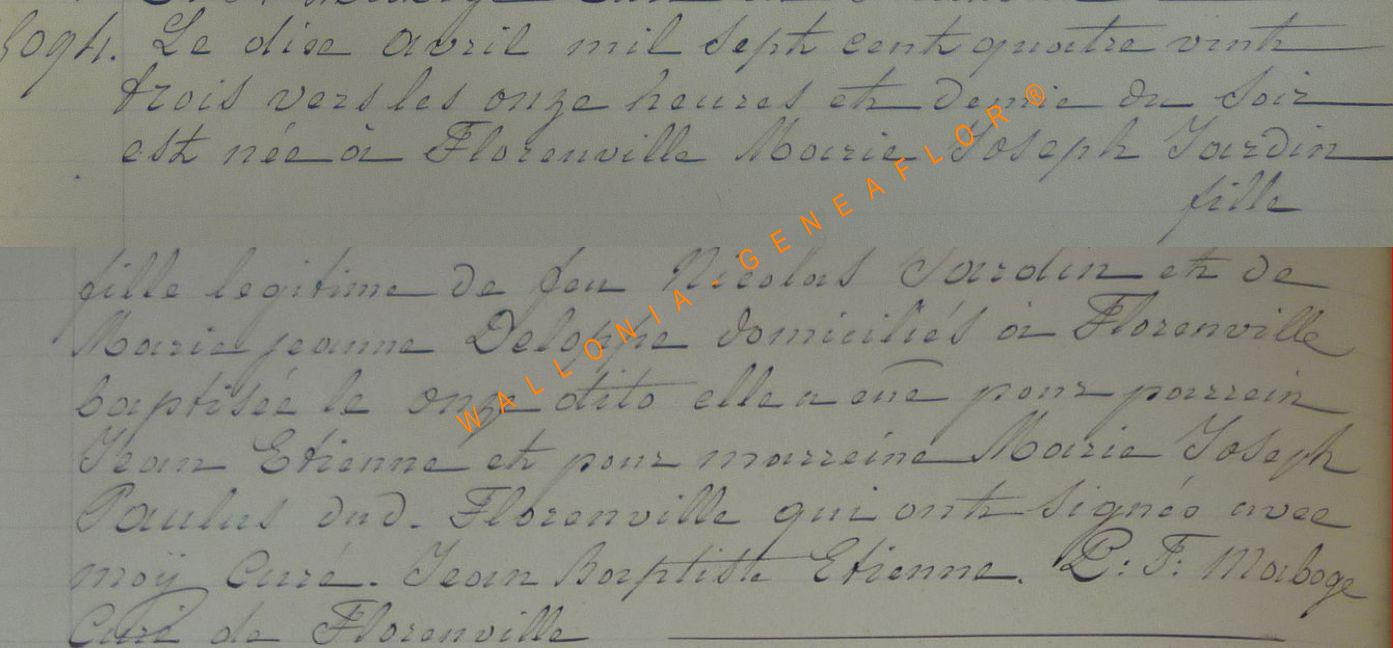 5094. Le dix avril mil sept cent quatre vint
trois vers les onze heures et demie du soir
est née à Florenville Marie Joseph Jardin
fille
fille legitime de feu Nicolas Jardin et de
Marie jeanne Deloppe domiciliés à Florenville
baptisée le onze dito elle a eue pour parrein
Jean Etienne et pour marreine Marie Joseph
Paulus dud. Florenville qui ont signés avec
moÿ Curé. Jean Baptiste Etienne. P: F: Maboge
Curé de Florenville
WALLONIA - GENEAFLOR ®